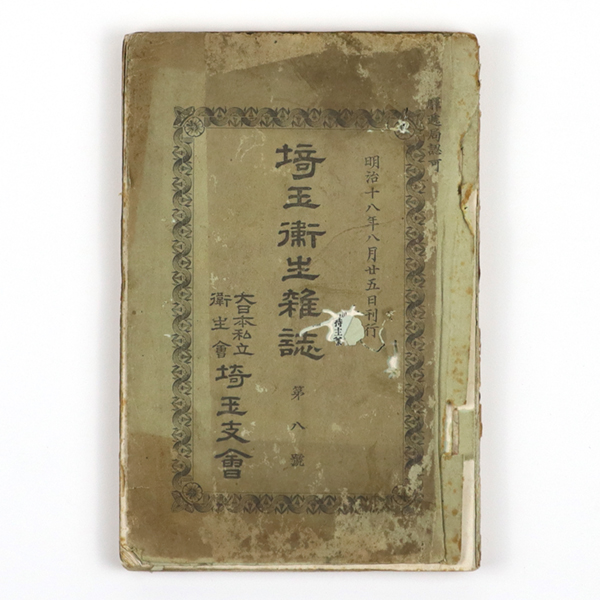 驛逓局認可
明治十八年八月廿五日刊行
埼玉衞生雑誌
第八號
大日本私立
衞生會
埼玉支會